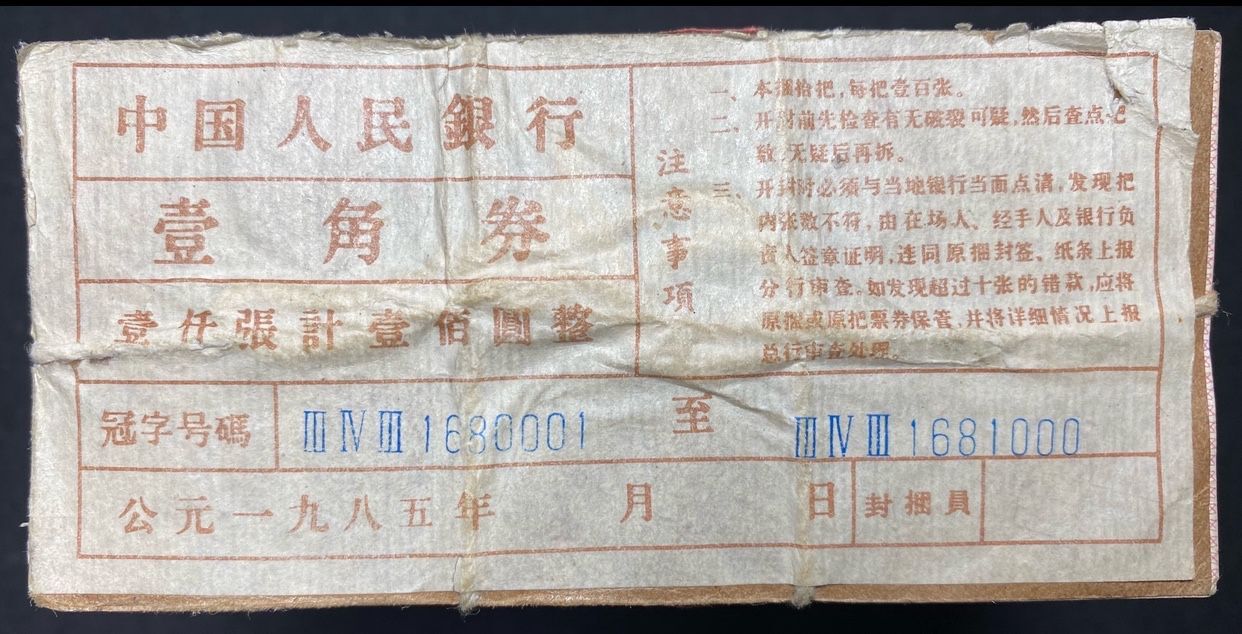 中国人民銀行
壹角券
壹仟張計壹佰圓整
注意事項
一、本捆拾把，每把壹百张。
二、开封前先检查有无破裂可疑，然后查点把
数，无疑后再拆。
三、开封时必须与当地银行当面点清，发现把
内张数不符，由在场人、经手人及银行负
责人签章证明，连同原捆封签、纸条上报
分行审查。如发现超过十张的错款，应将
原捆或原把票券保管，并将详细情况上报
总行审查处理。
冠字号碼 ⅢⅣⅢ1680001 至 ⅢⅣⅢ1681000
公元一九八五年 月 日 封捆員